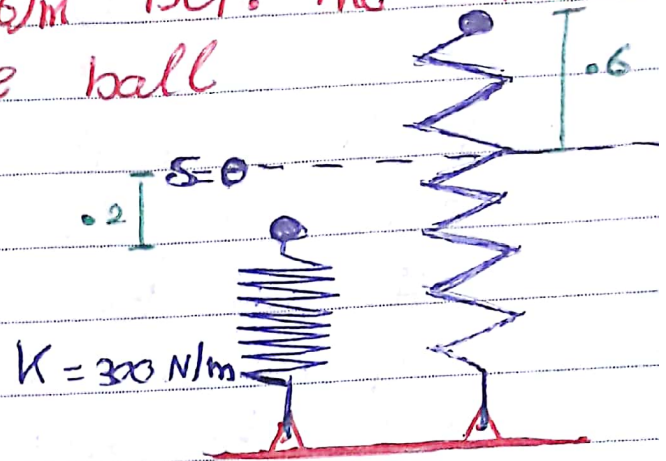 ball
.6
S=0
.2
K = 300 N/m